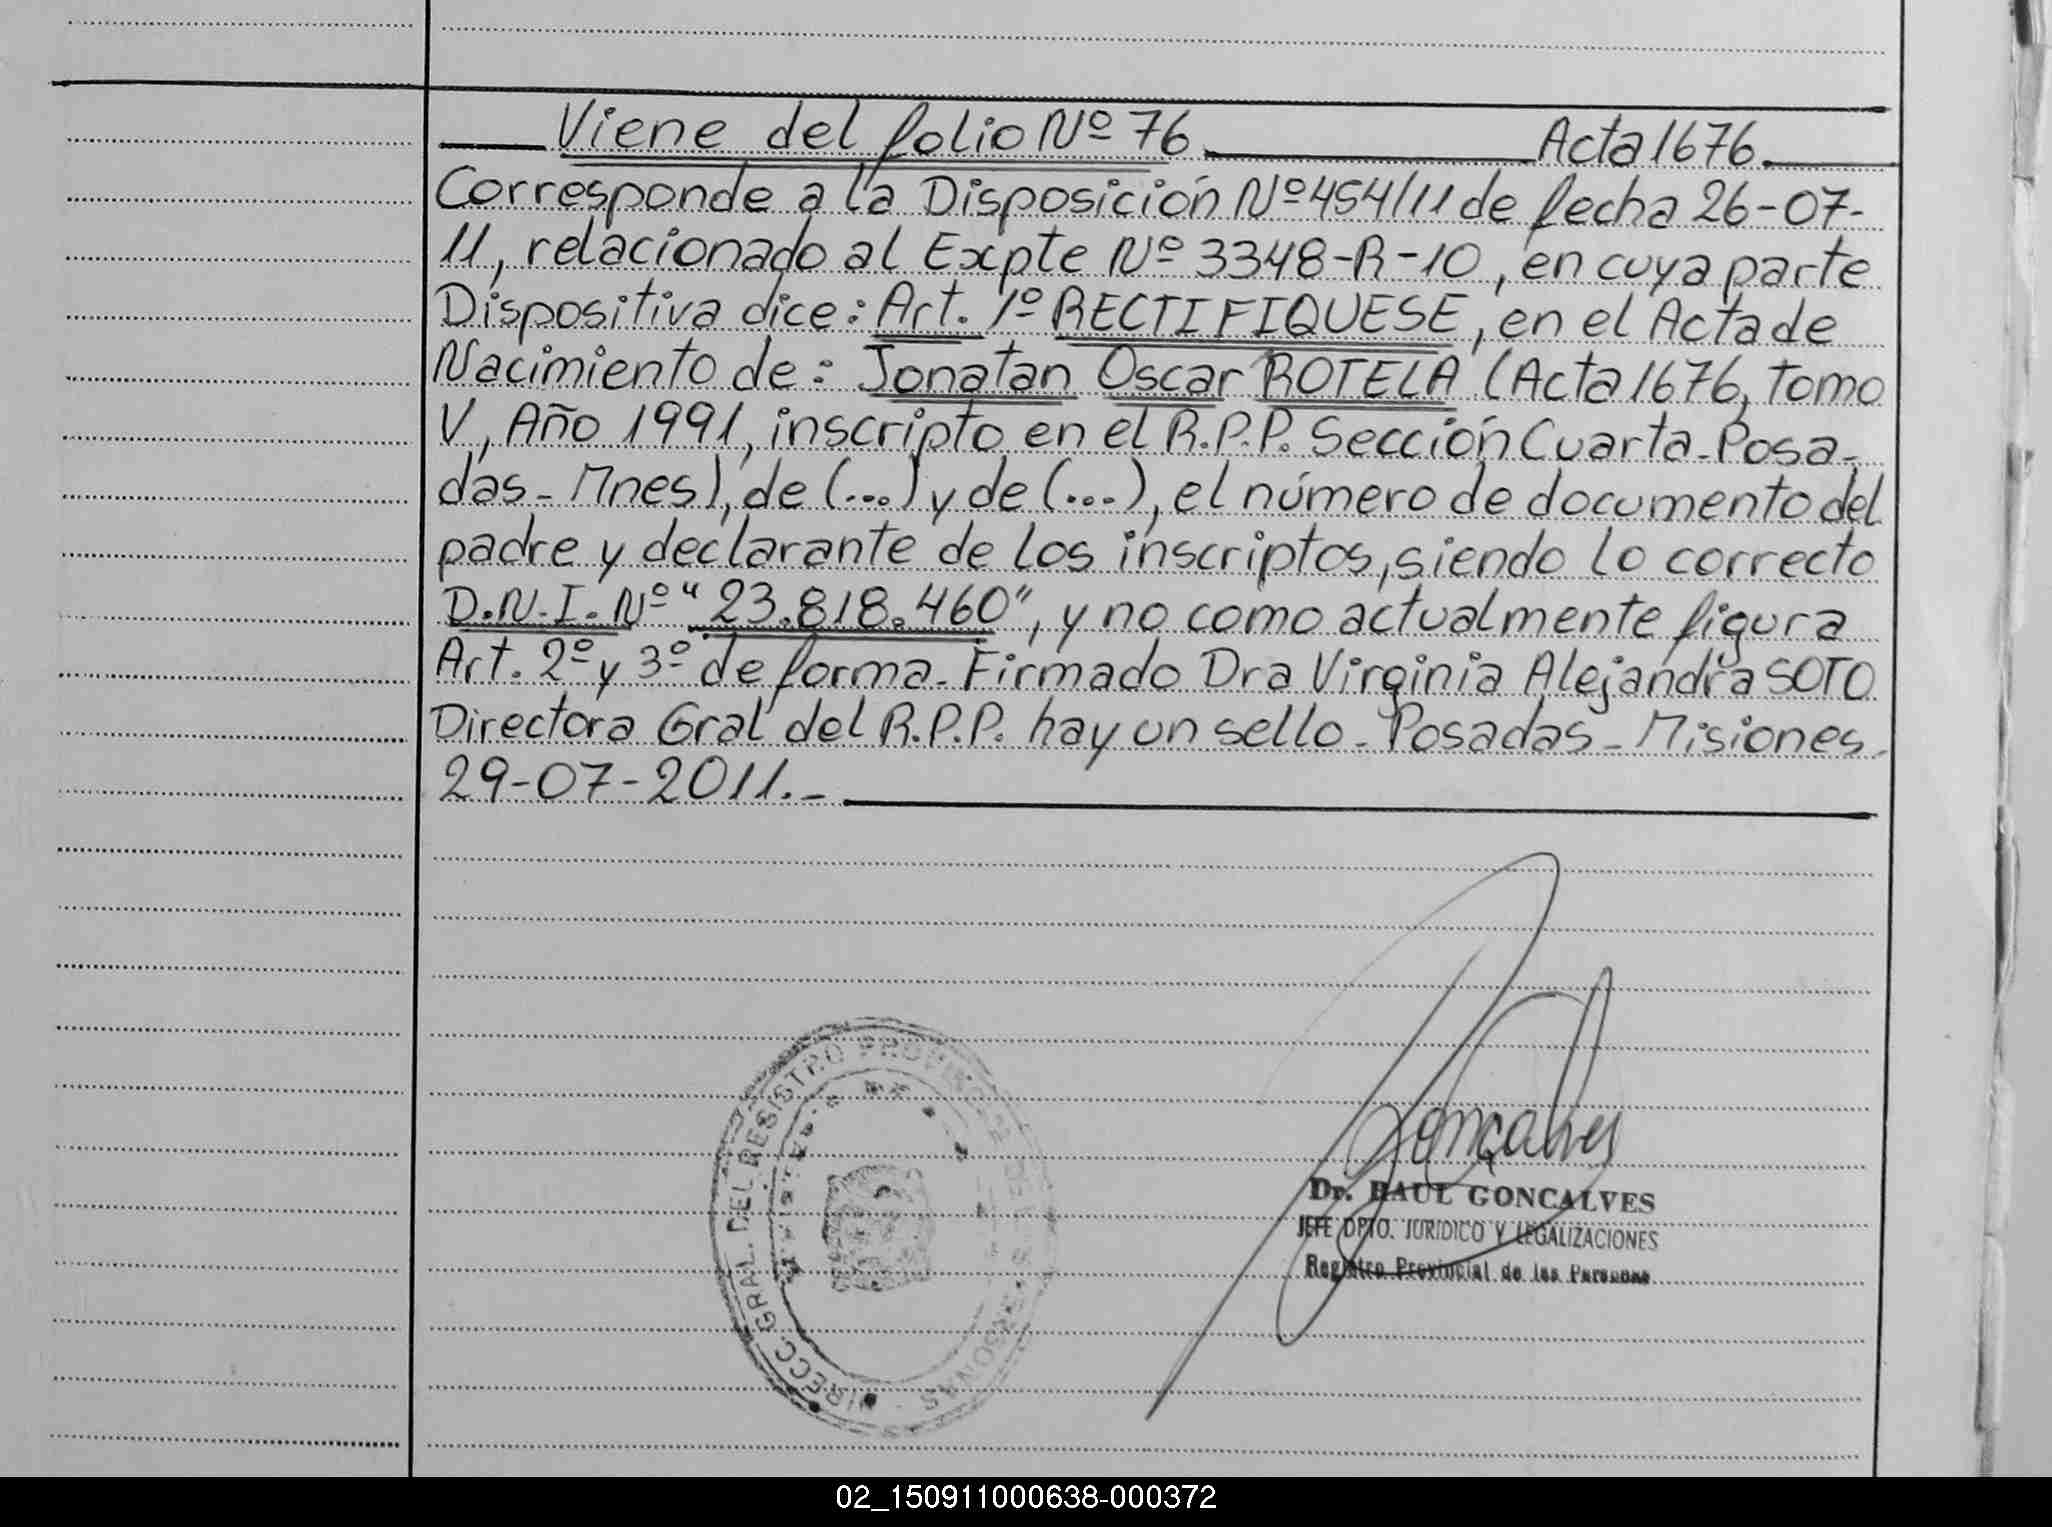 Viene del folio Nº 76. Acta 1676.
Corresponde a la Disposición Nº 454/11 de fecha 26-07-
11, relacionado al Expte Nº 3348-R-10, en cuya parte
Dispositiva dice: Art. 1º RECTIFIQUESE, en el Acta de
Nacimiento de: Jonatan Oscar ROTELA (Acta 1676, Tomo
V, Año 1991, inscripto en el R.P.P. Sección Cuarta-Posa-
das-Mnes), de (...) y de (...), el número de documento del
padre y declarante de los inscriptos, siendo lo correcto
D.N.I. Nº "23.818.460", y no como actualmente figura
Art. 2º y 3º de forma-Firmado Dra Virginia Alejandra SOTO
Directora Gral del R.P.P. hay un sello-Posadas-Misiones-
29-07-2011.-
DIRECC GRAL. DEL REGISTRO PROVINCIAL DE LAS PERSONAS
Goncalves
Dr. RAUL GONCALVES
JEFE DPTO. JURIDICO Y LEGALIZACIONES
Registro Provincial de las Personas
02_150911000638-000372